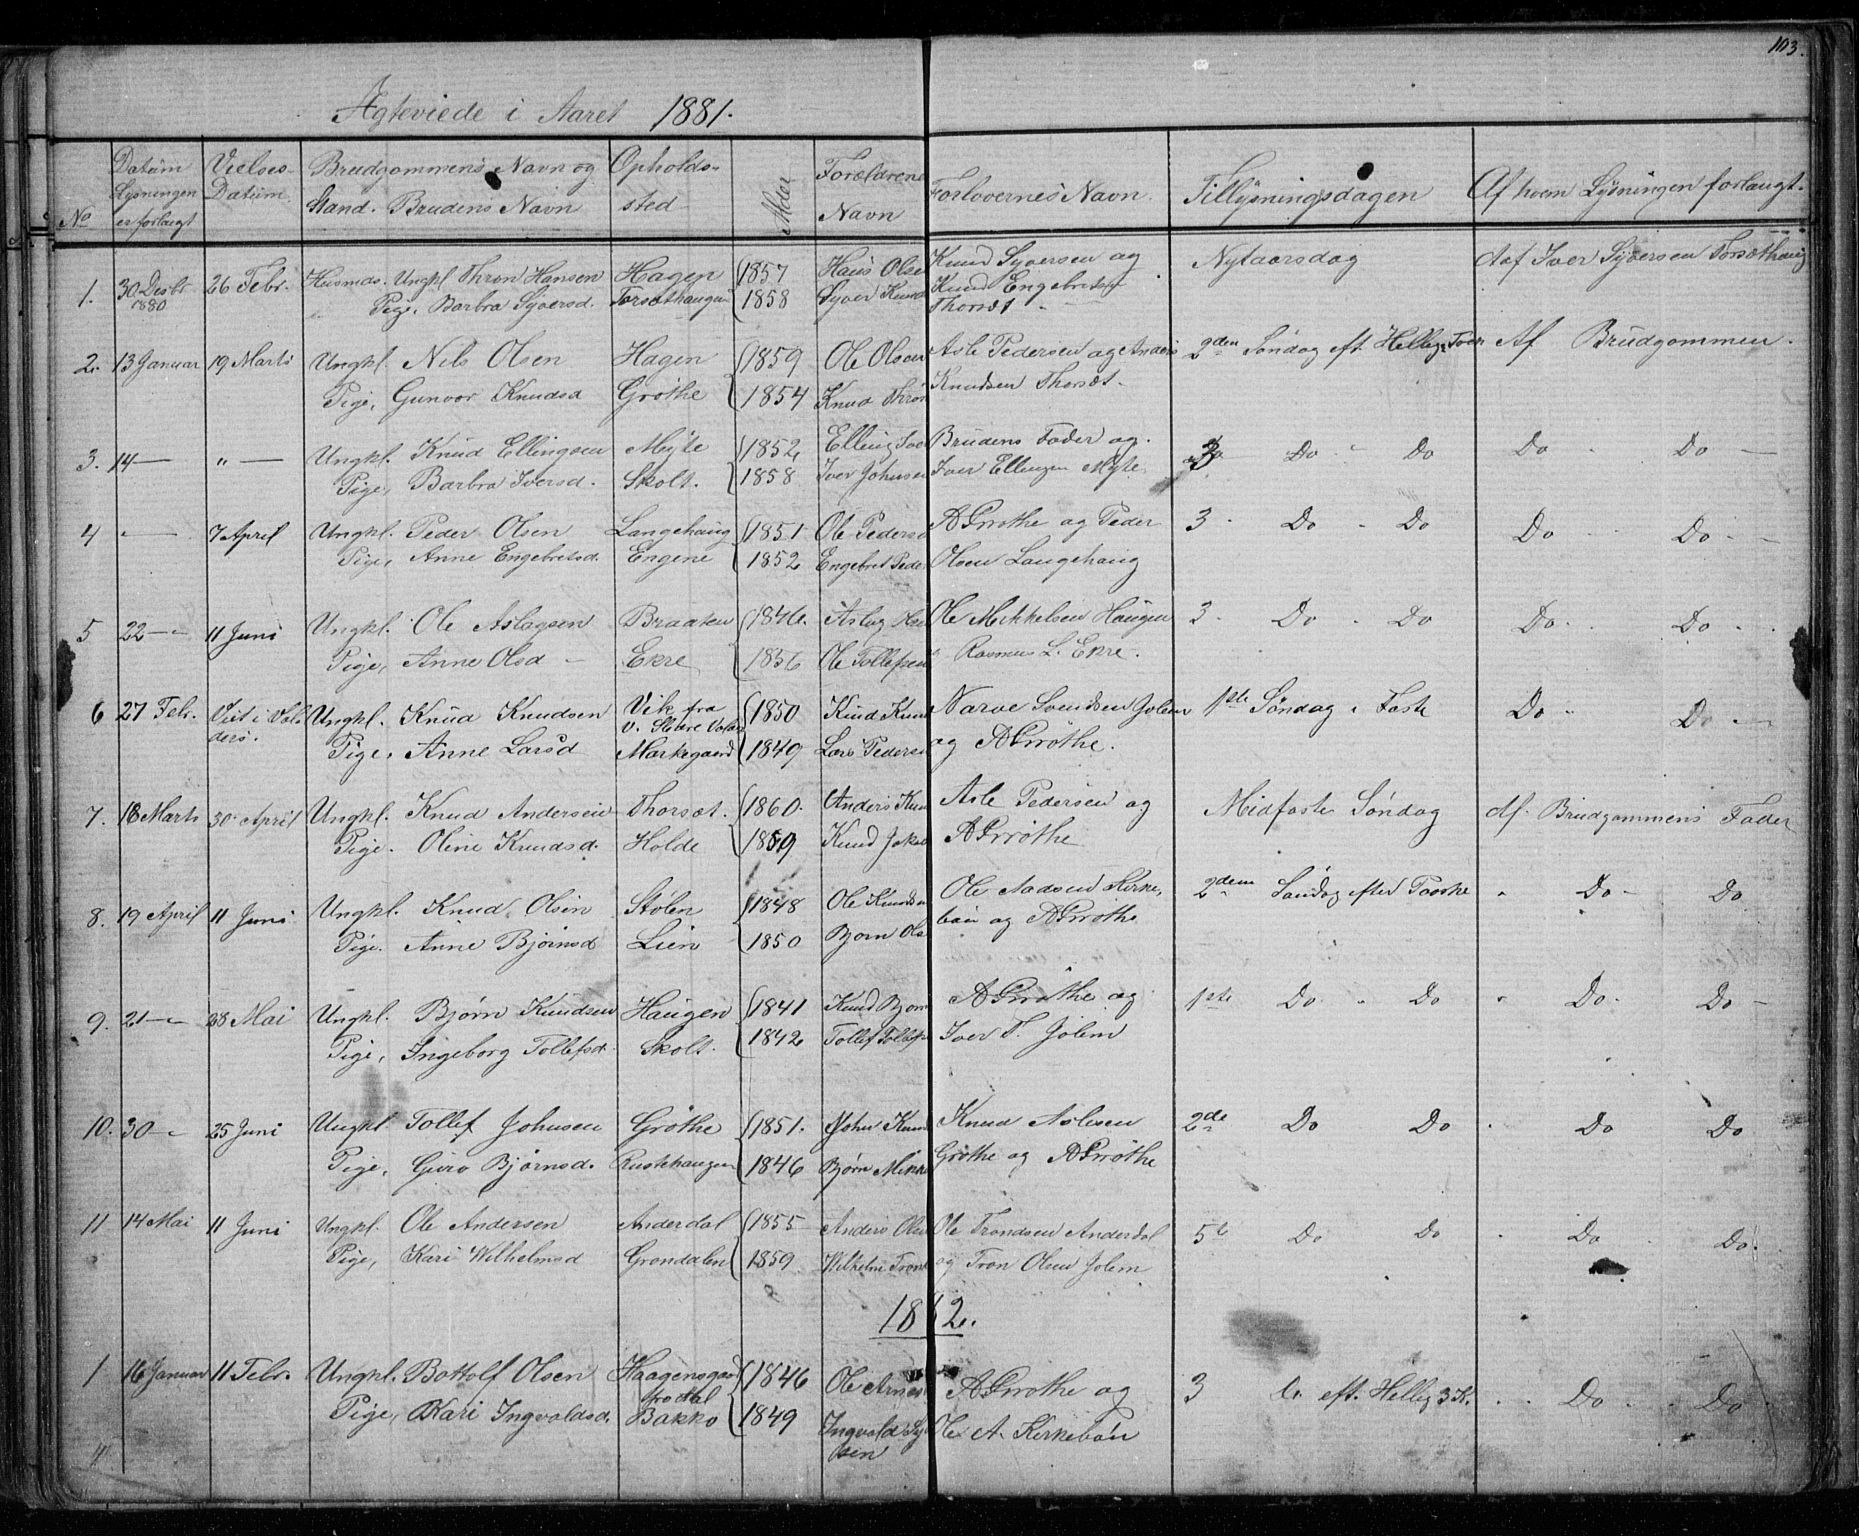 103.
Ægteviede i Aaret 1881.
No Datum Lysningen er forlangt Vielses-Datum Brudgommens Navn og Stand. Brudens Navn Opholdssted Alder Forældrene Navn Forlovernes Navn Tillysningsdagen Af hvem Lysningen forlangt.
1. 30 Desbr 1880 26 Febr. Husmds. Ungkl Thron Hansen Hagen 1857 Hans Olse Knud Syversen og Nytaarsdag Aaf Iver Syversen Torsæthaug
Pige, Barbra Syversd. Torsæthaugen 1858 Syver Knud Knud Engebretsen
Thorset
2. 13 Januar 19 Marts Ungkl. Nils Olsen Hagen 1859 Ole Olsen Asle Pedersen og Anders 2den Søndag eft. Hellig 3 Kon Af Brudgommen.
Pige, Gunvor Knudsd Grøthe 1854 Knud Thron Knudsen Thorset.
3. 14 — " — Ungkl. Knud Ellingsen Myte 1852 Elling Iver Brudens Fader og 3 Do " Do Do Do —
Pige, Barbra Iversd. Skolt. 1858 Iver Johnsen Iver Ellingsen Myte.
4 — 7 April Ungkl. Peder Olsen Langehaug 1851 Ole Peders AGrøthe og Peder 3 - Do - Do Do Do - -
Pige, Anne Engebretsd. Engene 1852 Engebret Pede Olsen Langehaug
5 22 — 11 Juni Ungkl. Ole Aslagsen Braaten 1846. Aslag Ole Mekkelsen Haugen 3 - Do - Do Do. Do - .
Pige, Anne Olsd - Ekre 1856 Ole Tollefsen " Rasmus L. Ekre.
6 27 Febr. Viet i Valders. Ungkl. Knud Knudsen Vik fra V. Slidre 1850 Knud Knud Narve Svendsen Jolem 1ste Søndag i Faste Do Do —
Pige, Anne Larsd Markegaard 1849 Lars Pederse og AGrøthe.
7. 18 Marts 30 April Ungkl. Knud Andersen Thorset. 1860. Anders Knu Asle Pedersen og Midfaste Søndag Af. Brudgommens Fader
Pige. Oline Knudsd. Holde 1859 Knud Jakob AGrøthe
8. 19 April 11 Juni Ungkl. Knud Olsen Stølen 1848 Ole Knudsen Ole Aadsen Kirke, 2dem Søndag efter Paaske " Do - Do
Pige. Anne Bjørnsd Lien 1850 Bjørn Ols bøn og AGrøthe
9. 21 — 28 Mai Ungkl. Bjørn Knudsen Haugen 1841 Knud Bjørn AGrøthe og 1ste Do " Do " Do - Do -
Pige, Ingeborg Tollefsd. Skolt. 1842 Tollef Tollefs Iver T. Jolem
10. 30 — 25 Juni Ungkl Tollef Johnsen Grøthe 1851. John Knu Knud Aslesen 2de Do Do - Do Do
Pige, Guro Bjørnsd. Rustehaugen 1846 Bjørn Mikke Grøthe og AGrøthe
11 14 Mai 11 Juni Ungkl. Ole Andersen Anderdal 1855 Anders Olse Ole Trondsen Anderdal 5te Do Do - Do Do.
Pige, Kari Wilhelmsd Grøndalen 1859 Wilhelm Tron og Tron Olsen Jolem
1882.
1 16 Januar 11 Febr. Ungkl. Bottolf Olsen Haagensgaard 1846 Ole Arnes AGrøthe og 3 Do eft. Hellig 3 K. . . Do . . Do .
Pige, Kari Ingvaldsd. Bakko 1849 Ingvald Sy Ole A. Kirkebøn
sen